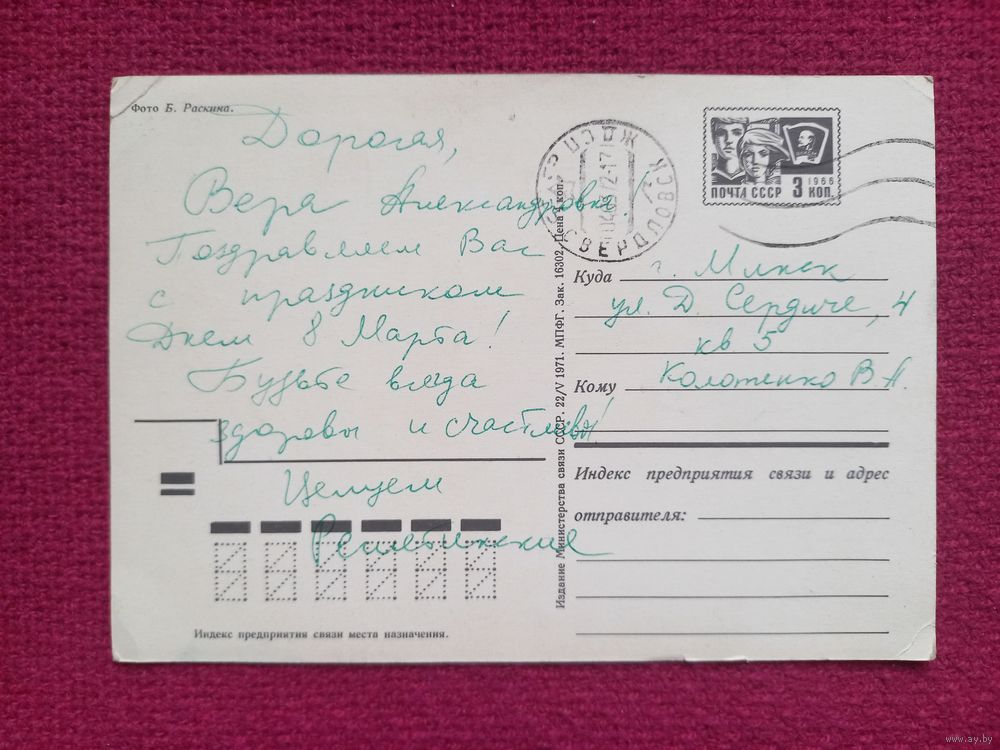 Фото Б. Раскина.
Дорогая,
Вера Александровна!
Поздравляем Вас
с праздником
Днем 8 Марта!
Будьте всегда
здоровы и счастливы!
Целуем
Индекс предприятия связи места назначения.
Издание Министерства связи СССР. 22/V 1971. МПФГ. Зак. 16302. Цена 4 коп.
СВЕРДЛОВСК
ПОЧТА СССР 3 КОП.
1966
Куда г. Минск
ул. Д. Сердича, 4
кв 5
Кому Колотенко В А.
Индекс предприятия связи и адрес
отправителя:
www.ay.by